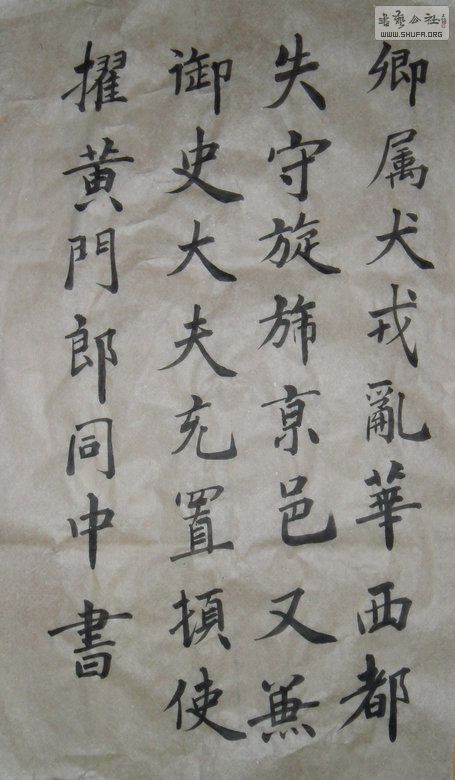 卿属犬戎亂華西都
失守旋斾亰邑又兼
御史大夫充置頓使
擢黄門郎同中書
書藝公社
WWW.SHUFA.ORG